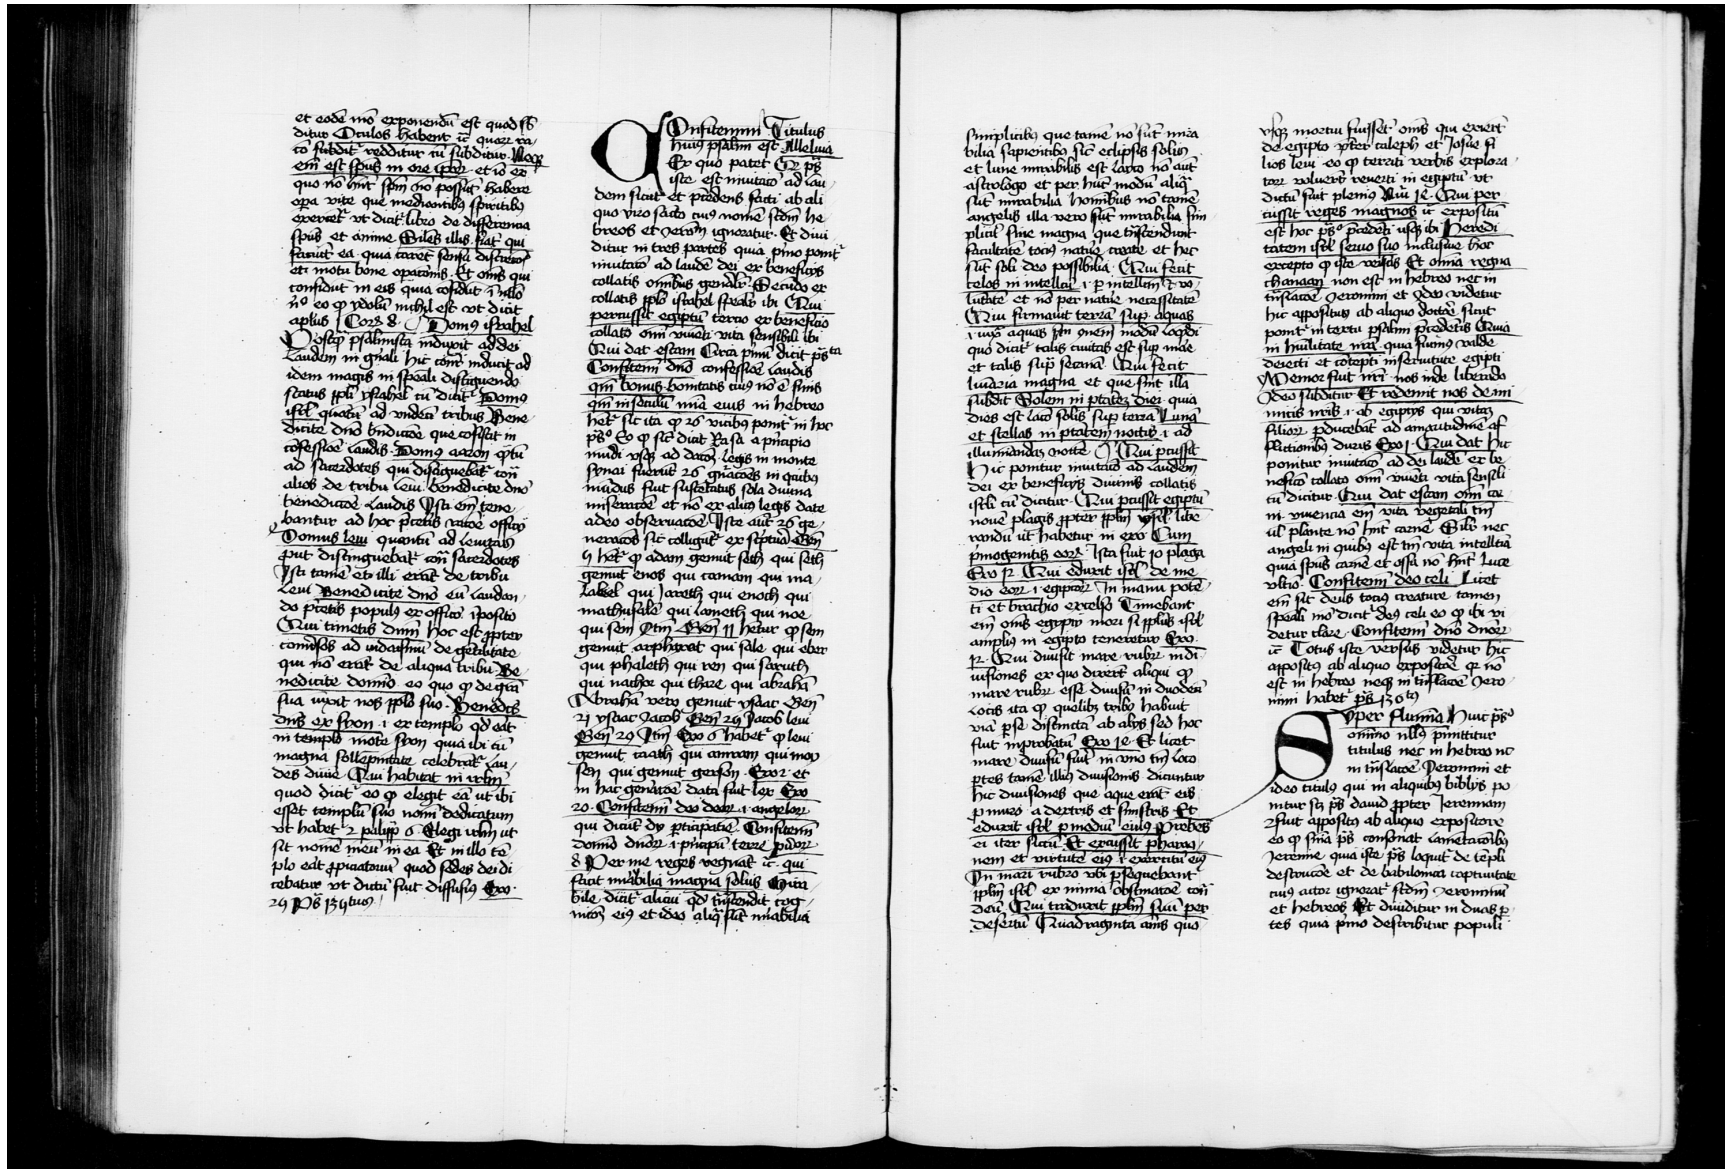 et eodē mō exponendū est quod sb̄
ditur Oculos habent ⁊c̄ quar᷒ ra/
cō subditʳ redditur cū subditur Neqꝫ
em̄ est spūs in ore ipor᷒ et iō ex
quo nō hn̄t spm̄ nō possūt habere
opa vite que mediantibus spiritibus
exercētʳ vt dicitʳ libro de differencia
spūs et anime Siles illis fiāt qui
faciūt ea quia carēt sensu discrecōis
et motu bone opacōnis Et oms̄ qui
confidūt in eis quia cōfidūt ī nichilo
eo qꝫ ydolū nichil est vt dicit
apl̄us Cor᷒ 8 Domꝰ israhel
Postqꝫ psalmista induxit ad dei
laudem in gn̄ali hic cōnr̄ inducit ad
idem magis in spēali distīguendo
status ppl̄i ysrahel cū dicitʳ Domꝰ
isrl̄ quātū ad vndeci tribus Bene/
dicite dnō bn̄dictōe que cōsistit in
cōfessiōe laudis Domꝰ aaron qꝫtū
ad sacerdotes qui distīguebātʳ cont̄
alios de tribu leui benedicite dnō
benedictōe laudis Isti em̄ tene/
bantur ad hoc p̄ ceteris racōe officij
Domus leui quantū ad leuitas
put̄ distinguebātʳ cont̄ sacerdotes
Isti tamē et illi erāt de tribu
leui Benedicite dnō eū laudan/
do p̄ ceteris populus ex officio īposito
Qui timetis dnm̄ hoc est ꝓpter
conuersos ad iudaismū de gētilitate
qui nō erāt de aliqua tribu Be/
nedicite domīo eo quo qꝫ de grā
sua vnxit nos pplo suo Benedictus
dns̄ ex syon .i. ex templo qd̄ erat
in templo mōte syon quia ibi cū
magna sollēpnitate celebrātʳ lau/
des diuīe Qui habitat in irl̄m
quod dicitʳ eo qꝫ elegit eā vt ibi
esset templū suo nomī dedicatum
vt habetʳ 2 palipp̄ 6 Elegi irlm̄ ut
sit nomē meū in ea Et in illo tē/
plo erat ꝓpiciatoriū quod sedes dei di/
cebatur vt dictū fuit diffusiꝰ Exo
29 Ps̄ 135tus
Confitemini Titulus
huiꝰ psalmi est Alleluia
Ex quo patet qꝫ ps̄
iste est inuitacō ad lau/
dem sicut et p̄cedens factꝰ ab ali
quo viro scōo cuiꝰ nomē scdm̄ he
breos et Jeronm̄ ignoratur Et diui
ditur in tres partes quia pmo ponitʳ
inuitacō ad laudē dei ex beneficijs
collatis omībus gn̄alr᷒ Secūdo ex
collatis pplo israhel spealr᷒ ibi Qui
percussit egiptū tercio ex beneficio
collato omī viuēti vita sensibili ibi
Qui dat escam Circa pmū dicit ps̄ta
Confitemī dnō confessiōe laudis
qm̄ bonus bonitatis cuiꝰ nō ē finis
qm̄ in seculū mīa eius in hebreo
hetʳ sic ita qꝫ 26 vicibus ponitʳ in hoc
ps̄o Eo qꝫ sic̄ dicit Ra.sa. a pncipio
mūdi vsqꝫ ad dacōꝫ legis in monte
synai fuerūt 26 gn̄acōes in quibus
mūdus fuit sustētatus sola diuina
miseracōe et nō ex aliqꝫ legis date
adeo obseruacōe Iste aūt 26 ge/
neracōes sic colligūtʳ ex sc̄ptura Gen̄
5 hetʳ qꝫ adam genuit seth qui seth
genuit enos qui cainam qui ma/
laleel qui Jareth qui enoch qui
mathusalē qui lameth qui noe
qui sem Itm̄ Gen̄ 11 hētur qꝫ sem
genuit arphaxat qui sale qui eber
qui phaleth qui reu qui saruch
qui nachor qui thare qui abrahā
Abrahā vero genuit ysaac Gen̄
21 ysaac Jacob Gen̄ 29 Jacob leui
Gen̄ 29 Itm̄ Exo 6 habetʳ qꝫ leui
genuit caath qui amram qui moy
sen qui genuit gerson Exo 2 et
in hac genēacōe data fuit lex Exo
20 Confitemī deo deor᷒ .i. angelor᷒
qui dicūt dij pticipatiē Confitemī
domīo dnōr᷒ .i. pncipū terre puer᷒
8 Per me reges regnāt ⁊c̄ qui
facit mirabilia magna solus Mira/
bile dicitʳ alicui qd̄ tn̄scendit cog/
nicōꝫ eiꝰ et ideo aliqꝫ sūt mirabilia
simplicibꝫ que tamē nō sūt mira
bilia sapientibꝫ sic eclipsis solis
et lune mirabilis est layco nō aūt
astrologo et per hūc modū aliqꝫ
sūt mirabilia homībus nō tamē
angelis illa vero sūt mirabilia sim
plicitʳ siue magna que tn̄scendunt
facultatē tociꝰ natue create et hec
sūt soli deo possibilia Qui fecit
celos in intellcū .i. p intellcm̄ ⁊ vo/
lūtatē et nō per natue necessitatē
Qui firmauit terrā supʳ aquas
.i. iuxᵃ aquas scdm̄ qnem modū loqndi
quo dicitʳ talis ciuitas est supʳ mare
et talis supʳ secanā Qui fecit
luīaria magna et que sint illa
subdit Solem in ptatēꝫ diei quia
dies est lacō solis supʳ terrā Lunā
et stellas in ptatem noctis .i. ad
illuminandaꝫ noctē Qui pcussit
Hic ponitur inuitacō ad laudem
dei ex beneficijs diuinis collatis
isrl̄i cū dicitur Qui pcussit egiptū
nouē plagis ꝓpter pplm̄ ysrl̄ libe
randū ut habetur in exo Cum
pmogenitis eor᷒ Ista fuit 10 plaga
Exo 12 Qui eduxit isrl̄ de me/
dio eor᷒ .i. egipcior᷒ In manu potē/
ti et brachio excelso Timebant
em̄ oms̄ egipcij mori si pplūs isrl̄
amplius in egipto teneretur Exo
12 Qui diuisit mare rubr᷒ in di/
uisiones ex quo dixerūt aliqui qꝫ
mare rubr᷒ esse diuisū in duodecī
locis ita qꝫ quelibꝫ tribꝰ habuit
viā p se distinctā ab alijs sed hoc
fuit improbatū Exo 14 Et licet
mare diuisū fuit in vno tm̄ loco
ptes tamē illiꝰ diuisionis dicuntur
hic diuisiones que aque erāt eis
p muro a dextris et sinistris Et
eduxit isrl̄ p mediū eiꝰ Prebēs
ei iter siccū Et excussit pharao/
nem et virtutē eiꝰ .i. exercitū eiꝰ
In mari rubro ubi psequebantʳ
pplm̄ isrl̄ ex nimia obstinacōe cont̄
deū Qui traduxit pplm̄ suū per
desertū Quadraginta annis quo
vsqꝫ mortui fuissēt oms̄ qui exierāt
de egipto ꝓter caleph et Josue fi
lios leui eo qꝫ territi verbis explora/
tor᷒ voluerūt reuerti in egiptū vt
dictū fuit pleniꝰ Nūi 14 Qui per
cussit reges magnos ⁊c̄ expositū
est hoc ps̄o p̄cedēti usqꝫ ibi Heredi
tatem isrl̄ seruo suo inclusiue hoc
excepto qꝫ iste versus Et omīa regna
chanaan non est in hebreo nec in
tn̄slacōe Jeronimi et ideo videtur
hic appositus ab aliquo doctōr᷒ sicut
ponitʳ in textu psalmi p̄cedētis Quia
in hūilitate nrā quia fuimꝰ valde
deiecti et cōtepti in seruitute egipti
Memor fuit nrī nos inde liberādo
Ideo subditur Et redemit nos de ini
micis nrīs .i. ab egiptijs qui vitaꝫ
filior᷒ pducebāt ad amaritudinē af
flictionibꝫ duris Exo 1 Qui dat hic
ponitur inuitacō ad dei laudē ex be
neficio collato omī viuēti vita sensili
cū dicitur Qui dat escam omī car
ni viuencia em̄ vita vegetali tm̄
ul̄ plante nō hn̄t carnē Silr᷒ nec
angeli in quibus est tm̄ vita intellcīa
quia spūs carnē et ossa nō hn̄t Luce
vltīo Confitemī deo celi Licet
em̄ sit deus tociꝰ creature tamen
speali mō dicitʳ deꝰ celi eo qꝫ ibi vi
detur clare Confitemī dnō dnōr᷒
⁊c̄ Totus iste versus videtur hic
appositꝰ ab aliquo expositōr᷒ qꝫ nō
est in hebreo neqꝫ in tn̄slacōe Jero
nimi habetʳ ps̄ 136tꝰ
Super flumīa Huic ps̄o
omīno nllūs pmittitur
titulus nec in hebreo nc̄
in tn̄slacōe Jeronimi et
ideo titulꝰ qui in aliquibꝫ biblijs po
nitur scꝫ ps̄ dauid ꝓpter Jeremiam
fuit appositꝰ ab aliquo expositore
eo qꝫ sīnīa ps̄ consonat lamentacōibꝫ
Jeremie quia iste ps̄ loquitʳ de tēpli
destructōe et de babilonica captiuitate
cuiꝰ auctor ignoratʳ scdm̄ Jeronimū
et hebreos Et diuiditur in duas p
tes quia pmo describitur populi